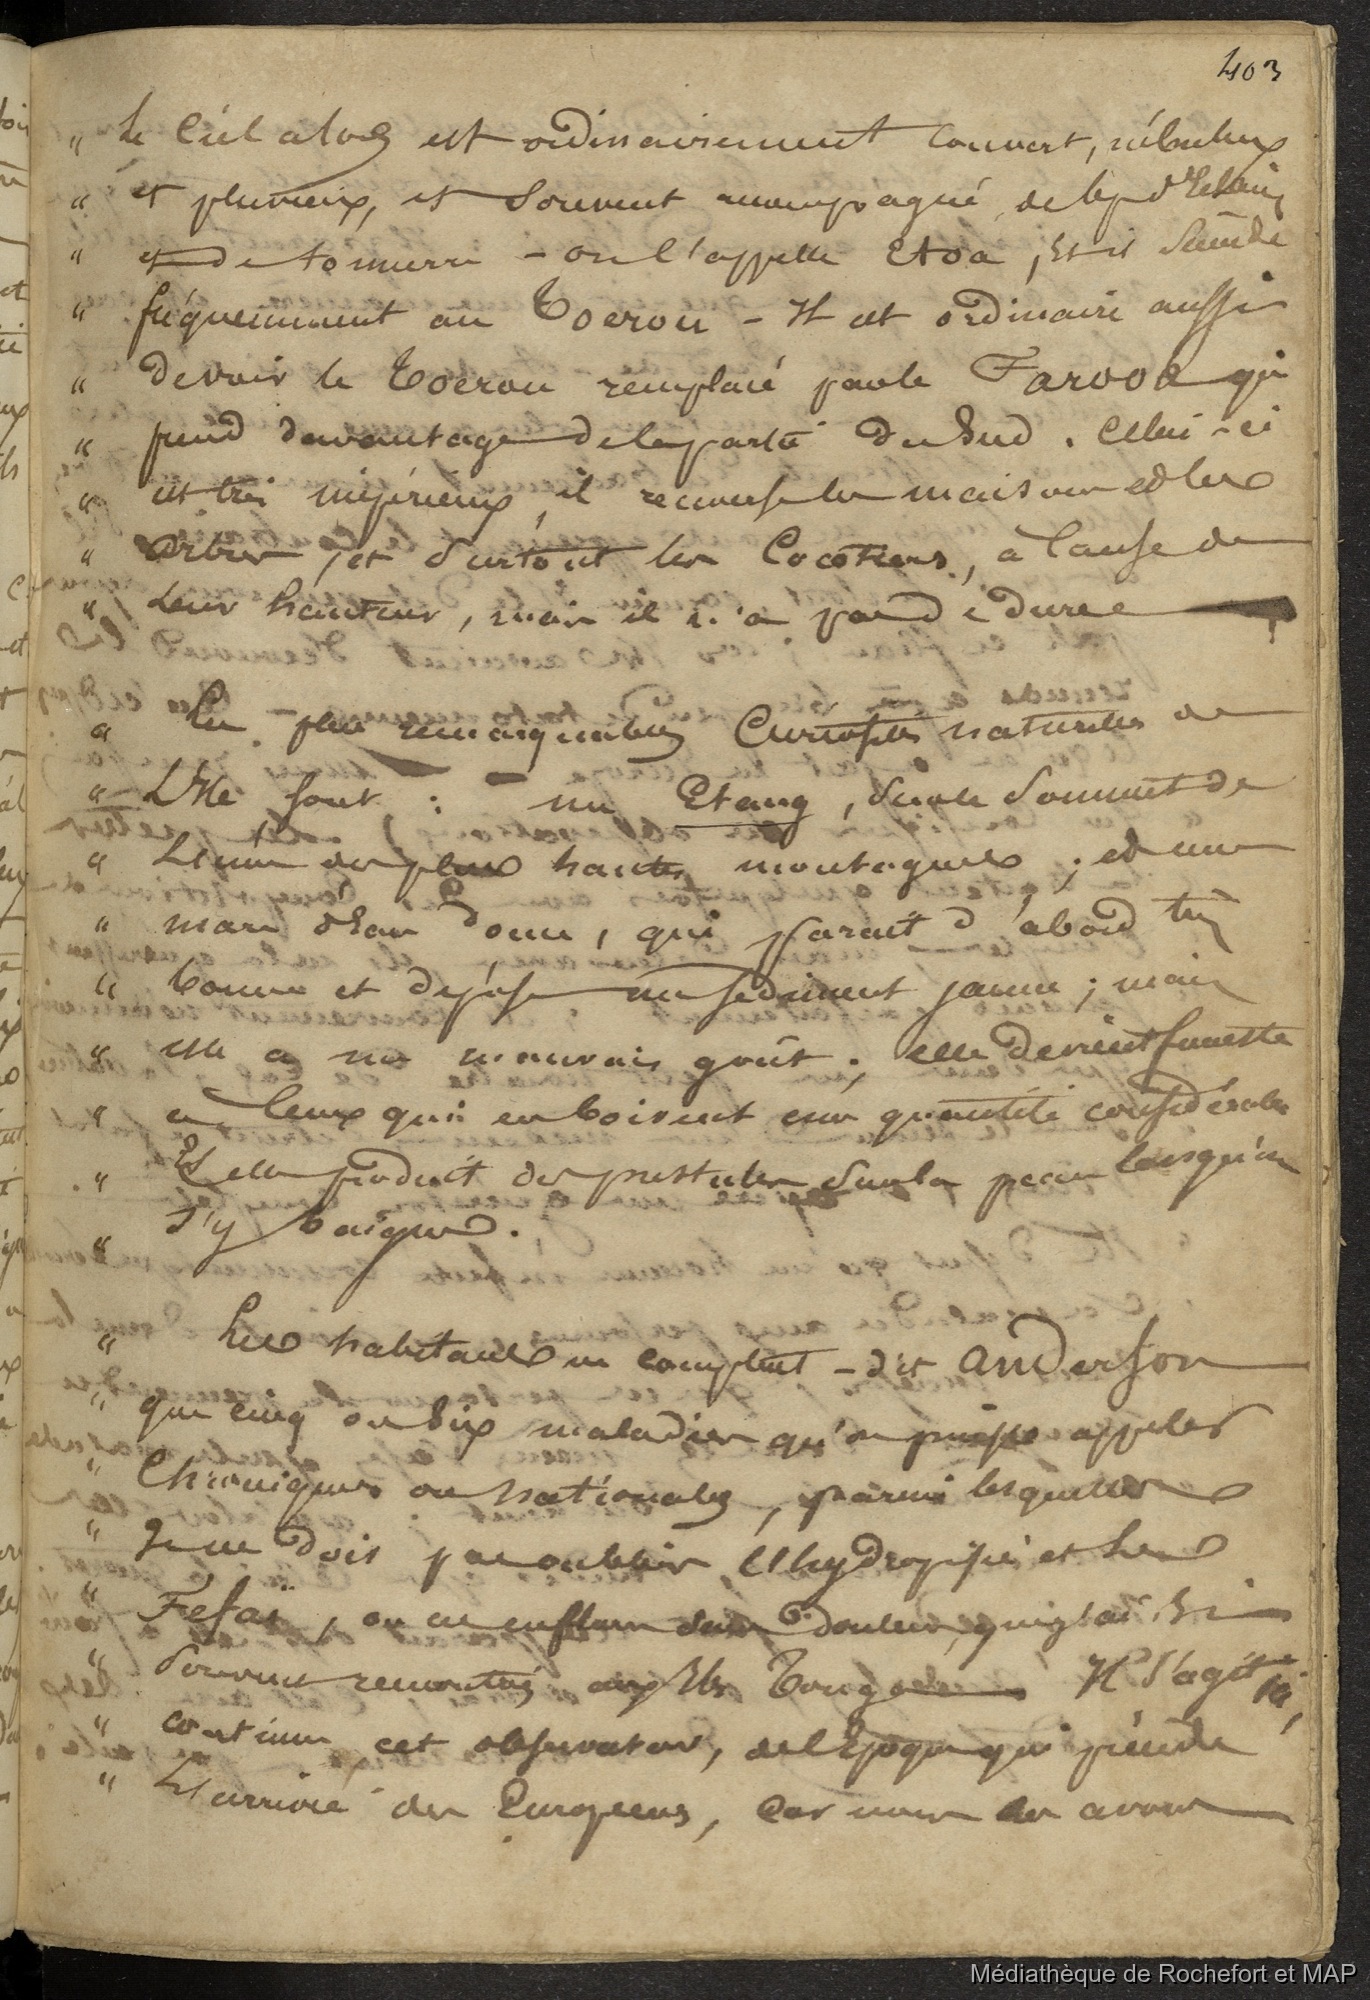 403
" Le Ciel alors est ordinairement Couvert, nébuleux
" et pluvieux, et Souvent accompagné de
" et de tonnerre - on l'appelle Etoa, Et il Succède
" fréquemment au Toerou - Il est ordinaire aussi
" de voir le Toerou remplacé par le Farooa qui
" prend davantage de la partie du Sud. Celui-ci
" est très impérieux, il renverse les maisons et les
" arbres, et Surtout les Cocotiers, à Cause de
" Leur hauteur, mais il n'a pas de durée
" Les plus remarquables Curiosités naturelles de
" L'Ile sont : un Etang, Sur le Sommet de
" L'une des plus hautes montagnes ; et une
" mare d'eau douce, qui parait d'abord très
" bonne et dépose un sediment jaune ; mais
" elle a un mauvais goût ; elle devient funeste
" a Ceux qui en boivent une quantité considérable
" Et elle produit des pustules Sur la peau lorsqu'on
" S'y baigne.
" Les habitans ne comptent - dit Anderson
" que cinq ou Six maladies qu'on puisse appeler
" Chroniques ou nationales, parmi lesquelles
" Je ne dois pas oublier L'hydropisie et Les
" Fefaï, ou ces enflures Sans douleur, que j'ai Si
" Souvent rencontrés aux Iles Tonga Il S'agit ici,
" continue cet observateur, de l'Epoque qui précéde
" L'arrivée des Européens, Car nous les avons
Médiathèque de Rochefort et MAP